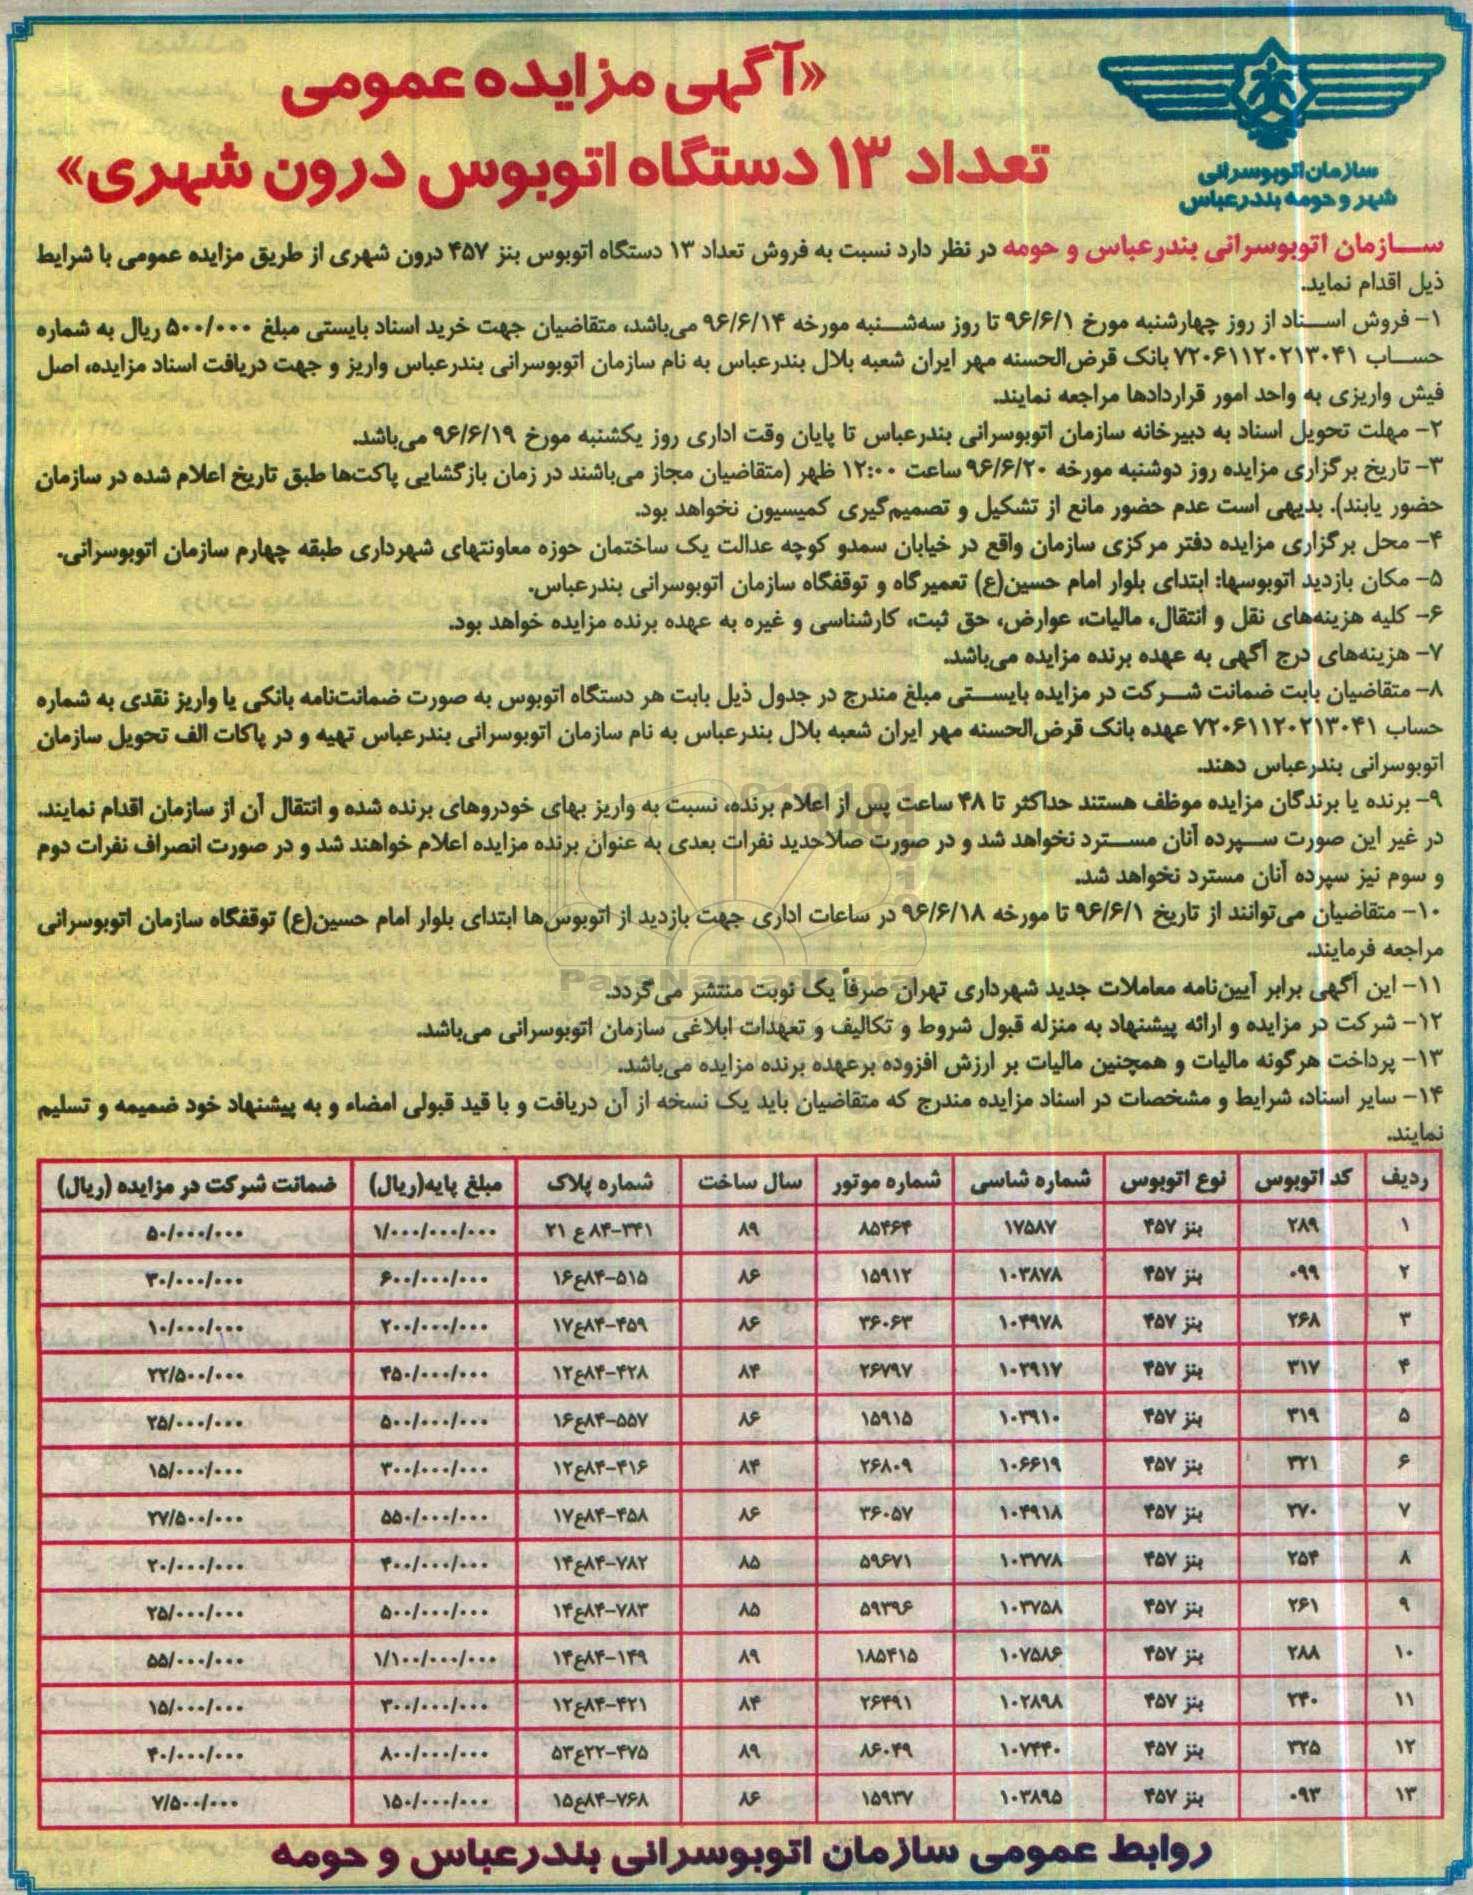 «آگهی مزایده عمومی
تعداد ۱۳ دستگاه اتوبوس درون شهری»
سازمان اتوبوسرانی
شهر و حومه بندرعباس
سازمان اتوبوسرانی بندرعباس و حومه در نظر دارد نسبت به فروش تعداد ۱۳ دستگاه اتوبوس بنز ۴۵۷ درون شهری از طریق مزایده عمومی با شرایط
ذیل اقدام نماید.
۱- فروش اسناد از روز چهارشنبه مورخ ۹۶/۶/۱ تا روز سه‌شنبه مورخه ۹۶/۶/۱۴ می‌باشد، متقاضیان جهت خرید اسناد بایستی مبلغ ۵۰۰/۰۰۰ ریال به شماره
حساب ۷۲۰۶۱۱۲۰۲۱۳۰۴۱ بانک قرض‌الحسنه مهر ایران شعبه بلال بندرعباس به نام سازمان اتوبوسرانی بندرعباس واریز و جهت دریافت اسناد مزایده، اصل
فیش واریزی به واحد امور قراردادها مراجعه نمایند.
۲- مهلت تحویل اسناد به دبیرخانه سازمان اتوبوسرانی بندرعباس تا پایان وقت اداری روز یکشنبه مورخ ۹۶/۶/۱۹ می‌باشد.
۳- تاریخ برگزاری مزایده روز دوشنبه مورخه ۹۶/۶/۲۰ ساعت ۱۲:۰۰ ظهر (متقاضیان مجاز می‌باشند در زمان بازگشایی پاکت‌ها طبق تاریخ اعلام شده در سازمان
حضور یابند). بدیهی است عدم حضور مانع از تشکیل و تصمیم‌گیری کمیسیون نخواهد بود.
۴- محل برگزاری مزایده دفتر مرکزی سازمان واقع در خیابان سمدو کوچه عدالت یک ساختمان حوزه معاونتهای شهرداری طبقه چهارم سازمان اتوبوسرانی.
۵- مکان بازدید اتوبوسها: ابتدای بلوار امام حسین(ع) تعمیرگاه و توقفگاه سازمان اتوبوسرانی بندرعباس.
۶- کلیه هزینه‌های نقل و انتقال، مالیات، عوارض، حق ثبت، کارشناسی و غیره به عهده برنده مزایده خواهد بود.
۷- هزینه‌های درج آگهی به عهده برنده مزایده می‌باشد.
۸- متقاضیان بابت ضمانت شرکت در مزایده بایستی مبلغ مندرج در جدول ذیل بابت هر دستگاه اتوبوس به صورت ضمانت‌نامه بانکی یا واریز نقدی به شماره
حساب ۷۲۰۶۱۱۲۰۲۱۳۰۴۱ عهده بانک قرض‌الحسنه مهر ایران شعبه بلال بندرعباس به نام سازمان اتوبوسرانی بندرعباس تهیه و در پاکات الف تحویل سازمان
اتوبوسرانی بندرعباس دهند.
۹- برنده یا برندگان مزایده موظف هستند حداکثر تا ۴۸ ساعت پس از اعلام برنده، نسبت به واریز بهای خودروهای برنده شده و انتقال آن از سازمان اقدام نمایند.
در غیر این صورت سپرده آنان مسترد نخواهد شد و در صورت صلاحدید نفرات بعدی به عنوان برنده مزایده اعلام خواهند شد و در صورت انصراف نفرات دوم
و سوم نیز سپرده آنان مسترد نخواهد شد.
۱۰- متقاضیان می‌توانند از تاریخ ۹۶/۶/۱ تا مورخه ۹۶/۶/۱۸ در ساعات اداری جهت بازدید از اتوبوس‌ها ابتدای بلوار امام حسین(ع) توقفگاه سازمان اتوبوسرانی
مراجعه فرمایند.
ParsNamadData
۱۱- این آگهی برابر آیین‌نامه معاملات جدید شهرداری تهران صرفاً یک نوبت منتشر می‌گردد.
۱۲- شرکت در مزایده و ارائه پیشنهاد به منزله قبول شروط و تکالیف و تعهدات ابلاغی سازمان اتوبوسرانی می‌باشد.
۱۳- پرداخت هرگونه مالیات و همچنین مالیات بر ارزش افزوده برعهده برنده مزایده می‌باشد.
۱۴- سایر اسناد، شرایط و مشخصات در اسناد مزایده مندرج که متقاضیان باید یک نسخه از آن دریافت و با قید قبولی امضاء و به پیشنهاد خود ضمیمه و تسلیم
نمایند.
ردیف کد اتوبوس نوع اتوبوس شماره شاسی شماره موتور سال ساخت شماره پلاک مبلغ پایه(ریال) ضمانت شرکت در مزایده (ریال)
۱ ۲۸۹ بنز ۴۵۷ ۱۷۵۸۷ ۸۵۴۶۴ ۸۹ ۸۴-۳۴۱ ع ۲۱ ۱/۰۰۰/۰۰۰/۰۰۰ ۵۰/۰۰۰/۰۰۰
۲ ۰۹۹ بنز ۴۵۷ ۱۰۳۸۷۸ ۱۵۹۱۲ ۸۶ ۸۴-۵۱۵ع۱۶ ۶۰۰/۰۰۰/۰۰۰ ۳۰/۰۰۰/۰۰۰
۳ ۲۶۸ بنز ۴۵۷ ۱۰۴۹۷۸ ۳۶۰۶۳ ۸۶ ۸۴-۴۵۹ع۱۷ ۲۰۰/۰۰۰/۰۰۰ ۱۰/۰۰۰/۰۰۰
۴ ۳۱۷ بنز ۴۵۷ ۱۰۲۹۱۷ ۲۶۷۹۷ ۸۴ ۸۴-۴۲۸ع۱۲ ۴۵۰/۰۰۰/۰۰۰ ۲۲/۵۰۰/۰۰۰
۵ ۳۱۹ بنز ۴۵۷ ۱۰۳۹۱۰ ۱۵۹۱۵ ۸۶ ۸۴-۵۵۷ع۱۶ ۵۰۰/۰۰۰/۰۰۰ ۲۵/۰۰۰/۰۰۰
۶ ۳۲۱ بنز ۴۵۷ ۱۰۶۶۱۹ ۲۶۸۰۹ ۸۴ ۸۴-۴۱۶ع۱۲ ۳۰۰/۰۰۰/۰۰۰ ۱۵/۰۰۰/۰۰۰
۷ ۲۷۰ بنز ۴۵۷ ۱۰۴۹۱۸ ۳۶۰۵۷ ۸۶ ۸۴-۴۵۸ع۱۷ ۵۵۰/۰۰۰/۰۰۰ ۲۷/۵۰۰/۰۰۰
۸ ۲۵۴ بنز ۴۵۷ ۱۰۳۷۷۸ ۵۹۶۷۱ ۸۵ ۸۴-۷۸۲ع۱۴ ۴۰۰/۰۰۰/۰۰۰ ۲۰/۰۰۰/۰۰۰
۹ ۲۶۱ بنز ۴۵۷ ۱۰۳۷۵۸ ۵۹۳۹۶ ۸۵ ۸۴-۷۸۳ع۱۴ ۵۰۰/۰۰۰/۰۰۰ ۲۵/۰۰۰/۰۰۰
۱۰ ۲۸۸ بنز ۴۵۷ ۱۰۷۵۸۶ ۱۸۵۴۱۵ ۸۹ ۸۴-۱۴۹ع۱۴ ۱/۱۰۰/۰۰۰/۰۰۰ ۵۵/۰۰۰/۰۰۰
۱۱ ۲۴۰ بنز ۴۵۷ ۱۰۲۸۹۸ ۲۶۴۹۱ ۸۴ ۸۴-۴۲۱ع۱۲ ۳۰۰/۰۰۰/۰۰۰ ۱۵/۰۰۰/۰۰۰
۱۲ ۳۲۵ بنز ۴۵۷ ۱۰۷۴۴۰ ۸۶۰۴۹ ۸۹ ۲۲-۴۷۵ع۵۳ ۸۰۰/۰۰۰/۰۰۰ ۴۰/۰۰۰/۰۰۰
۱۳ ۰۹۳ بنز ۴۵۷ ۱۰۳۸۹۵ ۱۵۹۳۷ ۸۶ ۸۴-۷۶۸ع۱۵ ۱۵۰/۰۰۰/۰۰۰ ۷/۵۰۰/۰۰۰
روابط عمومی سازمان اتوبوسرانی بندرعباس و حومه